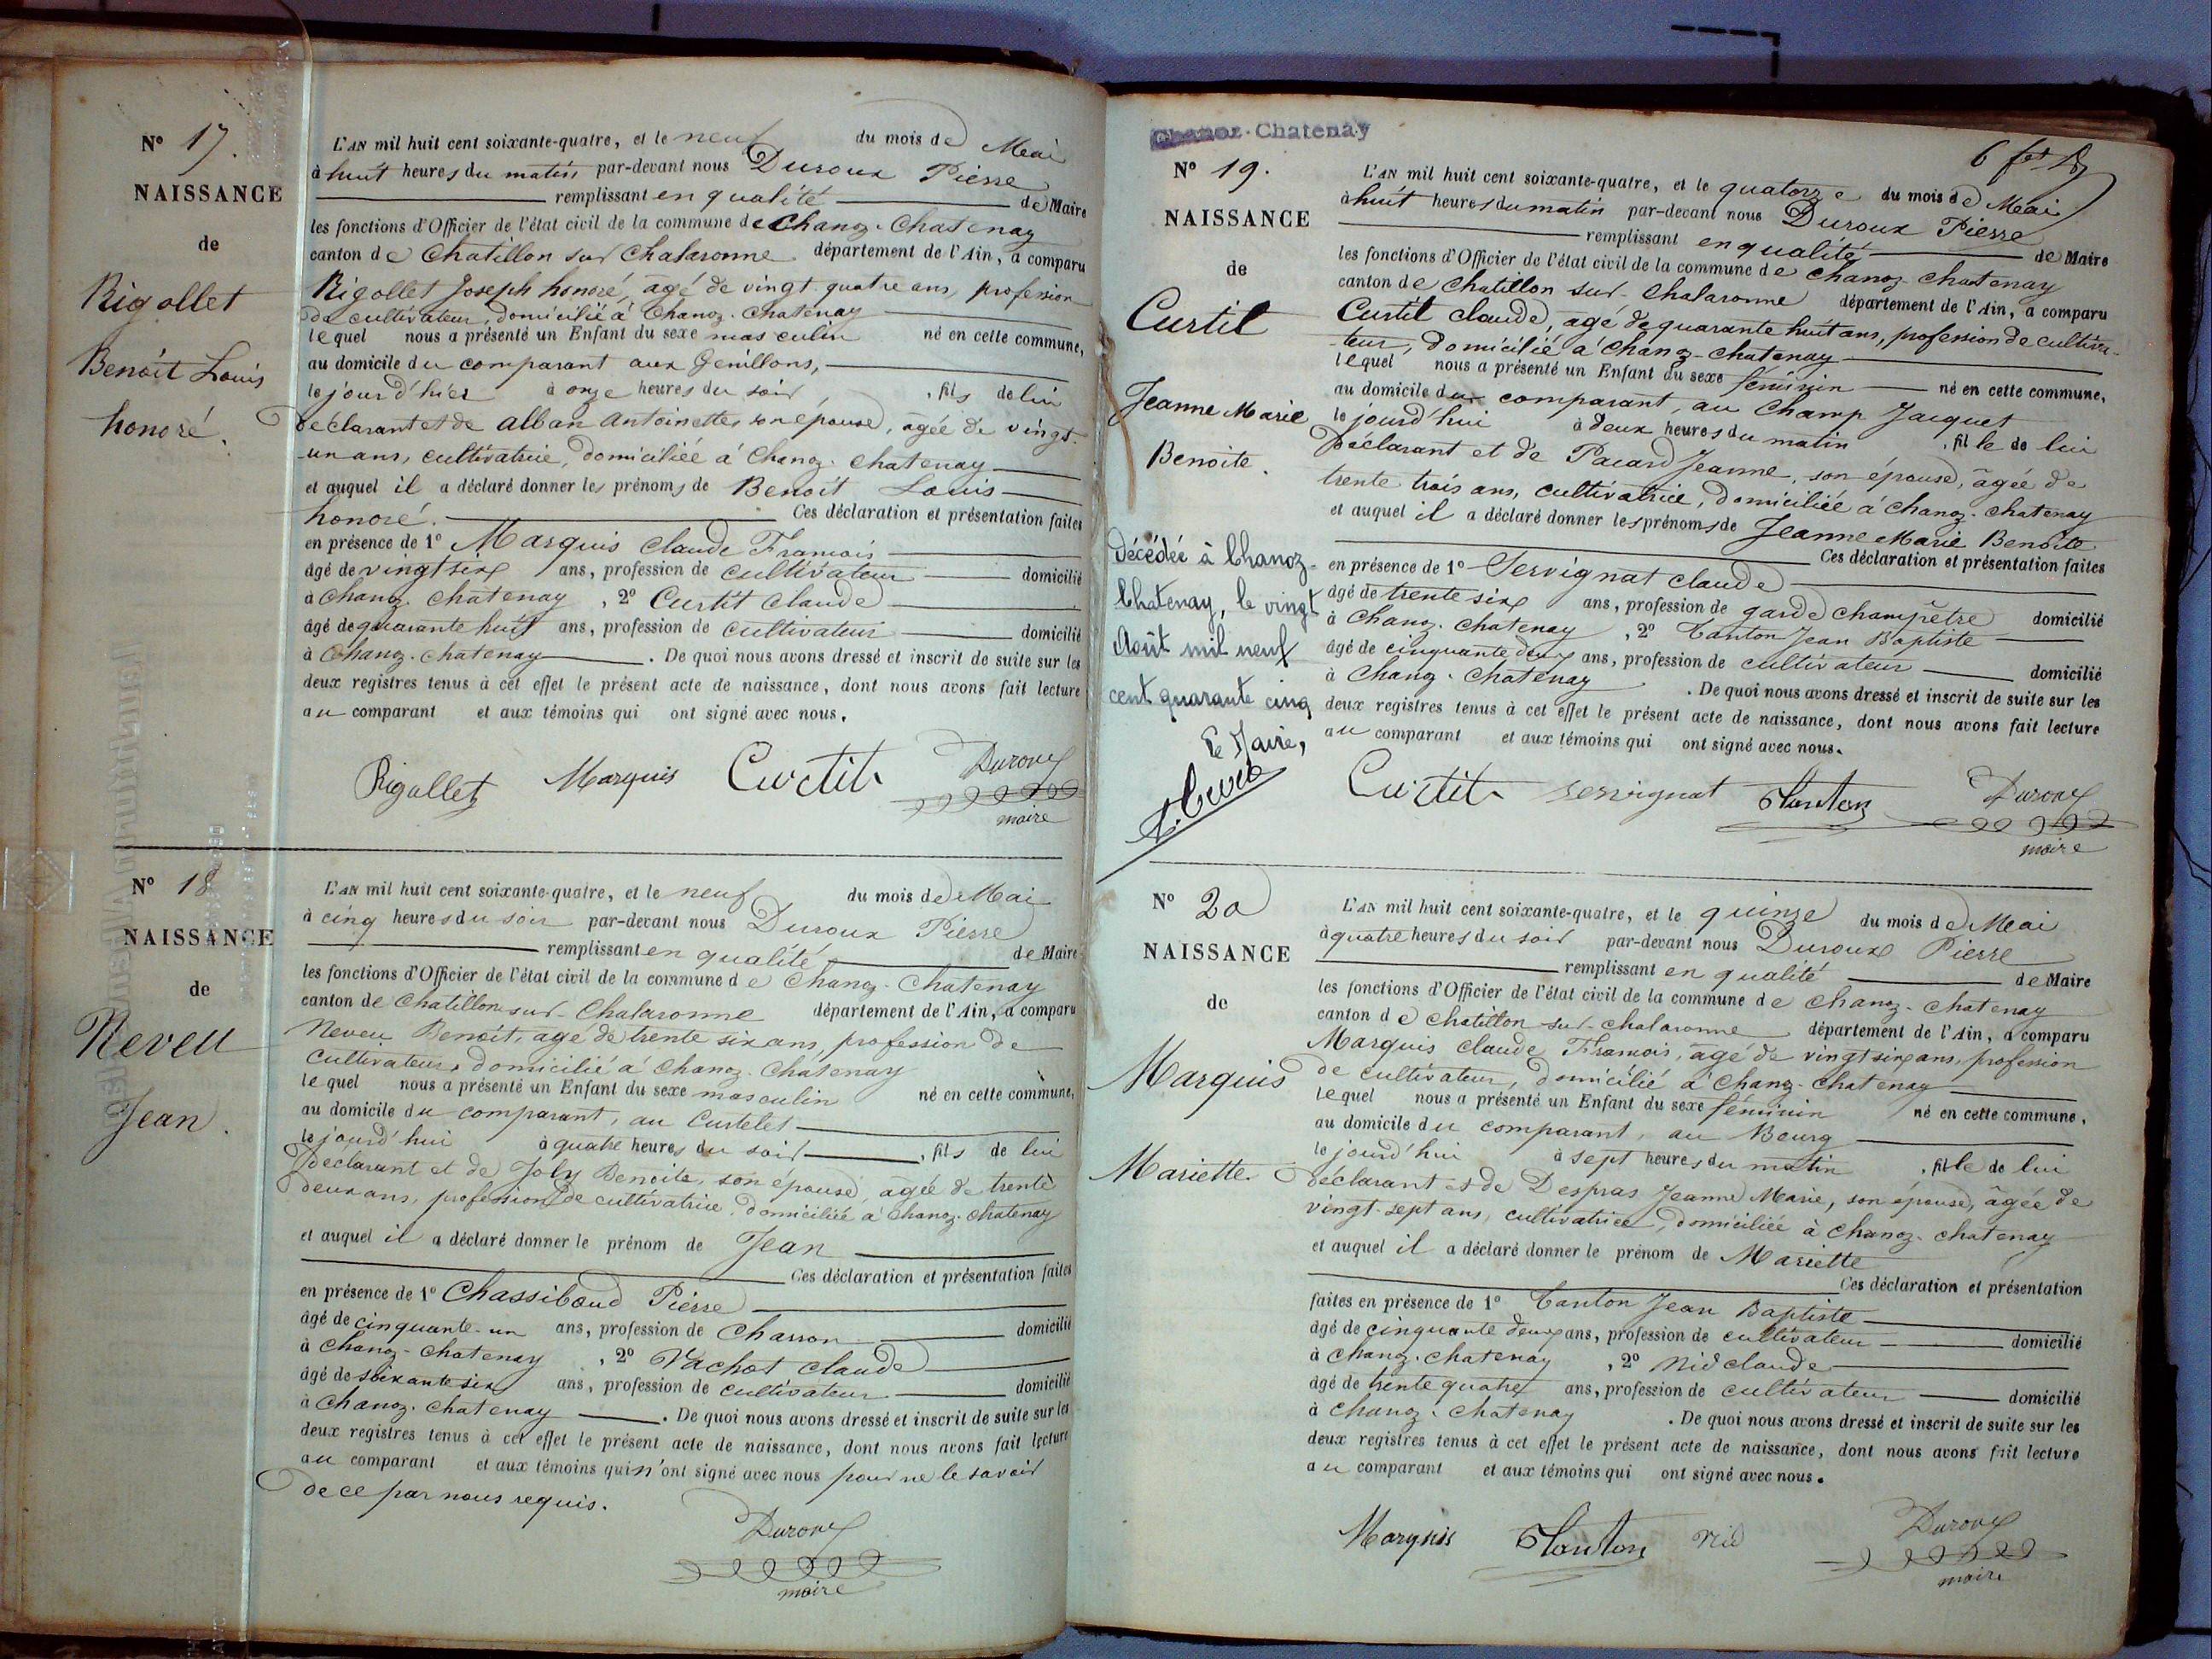 N° 17.
NAISSANCE
de
Rigollet
Benoît Louis
honoré.
L'AN mil huit cent soixante-quatre, et le neuf du mois de Mai
à huit heures du matin par-devant nous Duroux Pierre
remplissant en qualité de Maire
les fonctions d'Officier de l'état civil de la commune de Chanoz-Chatenay
canton de Chatillon sur Chalaronne département de l'Ain, a comparu
Rigollet Joseph honoré, âgé de vingt quatre ans, profession
de cultivateur, domicilié à Chanoz-Chatenay
lequel nous a présenté un Enfant du sexe masculin né en cette commune,
au domicile du comparant aux Genillons,
le jour d'hier à onze heures du soir, fils de lui
déclarant et de Alban Antoinette, son épouse, âgée de vingt-
un ans, cultivatrice, domiciliée à Chanoz-Chatenay
et auquel il a déclaré donner les prénoms de Benoit Louis
honoré. Ces déclaration et présentation faites
en présence de 1° Marquis Claude François
âgé de vingt six ans, profession de cultivateur domicilié
à Chanoz-Chatenay, 2° Curtit Claude
âgé de quarante huit ans, profession de cultivateur domicilié
à Chanoz-Chatenay. De quoi nous avons dressé et inscrit de suite sur les
deux registres tenus à cet effet le présent acte de naissance, dont nous avons fait lecture
au comparant et aux témoins qui ont signé avec nous.
Rigollet Marquis Curtit Duroux
maire
N° 18
NAISSANCE
de
Neveu
Jean.
L'AN mil huit cent soixante-quatre, et le neuf du mois de Mai
à cinq heures du soir par-devant nous Duroux Pierre
remplissant en qualité de Maire
les fonctions d'Officier de l'état civil de la commune de Chanoz-Chatenay
canton de Chatillon-sur-Chalaronne département de l'Ain, a comparu
Neveu Benoit, âgé de trente six ans, profession de
cultivateur, domicilié à Chanoz-Chatenay
lequel nous a présenté un Enfant du sexe masculin né en cette commune,
au domicile du comparant, au Curtelet
le jourd'hui à quatre heures du soir, fils de lui
déclarant et de Joly Benoite, son épouse, âgée de trente
deux ans, profession de cultivatrice, domiciliée à Chanoz-Chatenay
et auquel il a déclaré donner le prénom de Jean
Ces déclaration et présentation faites
en présence de 1° Chassibaud Pierre
âgé de cinquante-un ans, profession de Charron domicilié
à Chanoz-Chatenay, 2° Vachot Claude
âgé de soixante six ans, profession de cultivateur domicilié
à Chanoz-Chatenay. De quoi nous avons dressé et inscrit de suite sur les
deux registres tenus à cet effet le présent acte de naissance, dont nous avons fait lecture
au comparant et aux témoins qui n'ont signé avec nous pour ne le savoir
de ce par nous requis.
Duroux
maire
Chanoz-Chatenay
N° 19.
NAISSANCE
de
Curtil
Jeanne Marie
Benoite.
Décédée à Chanoz-
Chatenay, le vingt
Août mil neuf
cent quarante cinq
Le Maire,
6 fet
L'AN mil huit cent soixante-quatre, et le quatorze du mois de Mai
à huit heures du matin par-devant nous Duroux Pierre
remplissant en qualité de Maire
les fonctions d'Officier de l'état civil de la commune de Chanoz-Chatenay
canton de Chatillon sur-Chalaronne département de l'Ain, a comparu
Curtil Claude, âgé de quarante huit ans, profession de cultiva-
teur, domicilié à Chanoz-Chatenay
lequel nous a présenté un Enfant du sexe féminin né en cette commune,
au domicile du comparant, au Champ Jacquet
le jourd'hui à deux heures du matin, fille de lui
Déclarant et de Pacard Jeanne, son épouse, âgée de
trente trois ans, cultivatrice, domiciliée à Chanoz-Chatenay
et auquel il a déclaré donner les prénoms de Jeanne Marie Benoite
Ces déclaration et présentation faites
en présence de 1° Servignat Claude
âgé de trente six ans, profession de garde champêtre domicilié
à Chanoz-Chatenay, 2° Tanton Jean Baptiste
âgé de cinquante deux ans, profession de cultivateur domicilié
à Chanoz-Chatenay. De quoi nous avons dressé et inscrit de suite sur les
deux registres tenus à cet effet le présent acte de naissance, dont nous avons fait lecture
au comparant et aux témoins qui ont signé avec nous.
Curtit servignat Tanton Duroux
maire
N° 20
NAISSANCE
de
Marquis
Mariette.
L'AN mil huit cent soixante-quatre, et le quinze du mois de Mai
à quatre heures du soir par-devant nous Duroux Pierre
remplissant en qualité de Maire
les fonctions d'Officier de l'état civil de la commune de Chanoz-Chatenay
canton de Chatillon-sur-Chalaronne département de l'Ain, a comparu
Marquis Claude François, âgé de vingt six ans, profession
de cultivateur, domicilié à Chanoz-Chatenay
lequel nous a présenté un Enfant du sexe féminin né en cette commune,
au domicile du comparant, au Bourg
le jourd'hui à sept heures du matin, fille de lui
déclarant et de Despras Jeanne Marie, son épouse, âgée de
vingt-sept ans, cultivatrice, domiciliée à Chanoz-Chatenay
et auquel il a déclaré donner le prénom de Mariette
Ces déclaration et présentation
faites en présence de 1° Tanton Jean Baptiste
âgé de cinquante deux ans, profession de cultivateur domicilié
à Chanoz-Chatenay, 2° Nid Claude
âgé de trente quatre ans, profession de cultivateur domicilié
à Chanoz-Chatenay. De quoi nous avons dressé et inscrit de suite sur les
deux registres tenus à cet effet le présent acte de naissance, dont nous avons fait lecture
au comparant et aux témoins qui ont signé avec nous.
Marquis Tanton Nid Duroux
maire